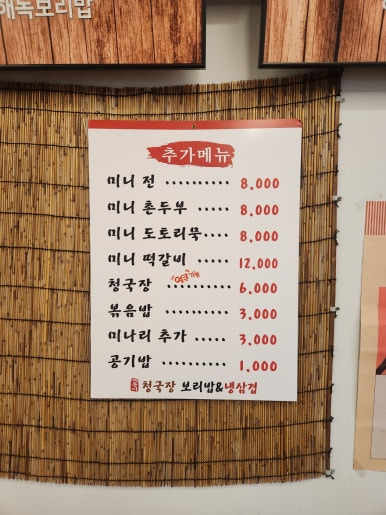 해녹보리밥
추가메뉴
미니 전 .......... 8,000
미니 촌두부 ..... 8,000
미니 도토리묵.... 8,000
미니 떡갈비 ..... 12,000
청국장 .......... 6,000
볶음밥 .......... 3,000
미나리 추가 ..... 3,000
공기밥 .......... 1,000
청국장 보리밥&냉삼겹